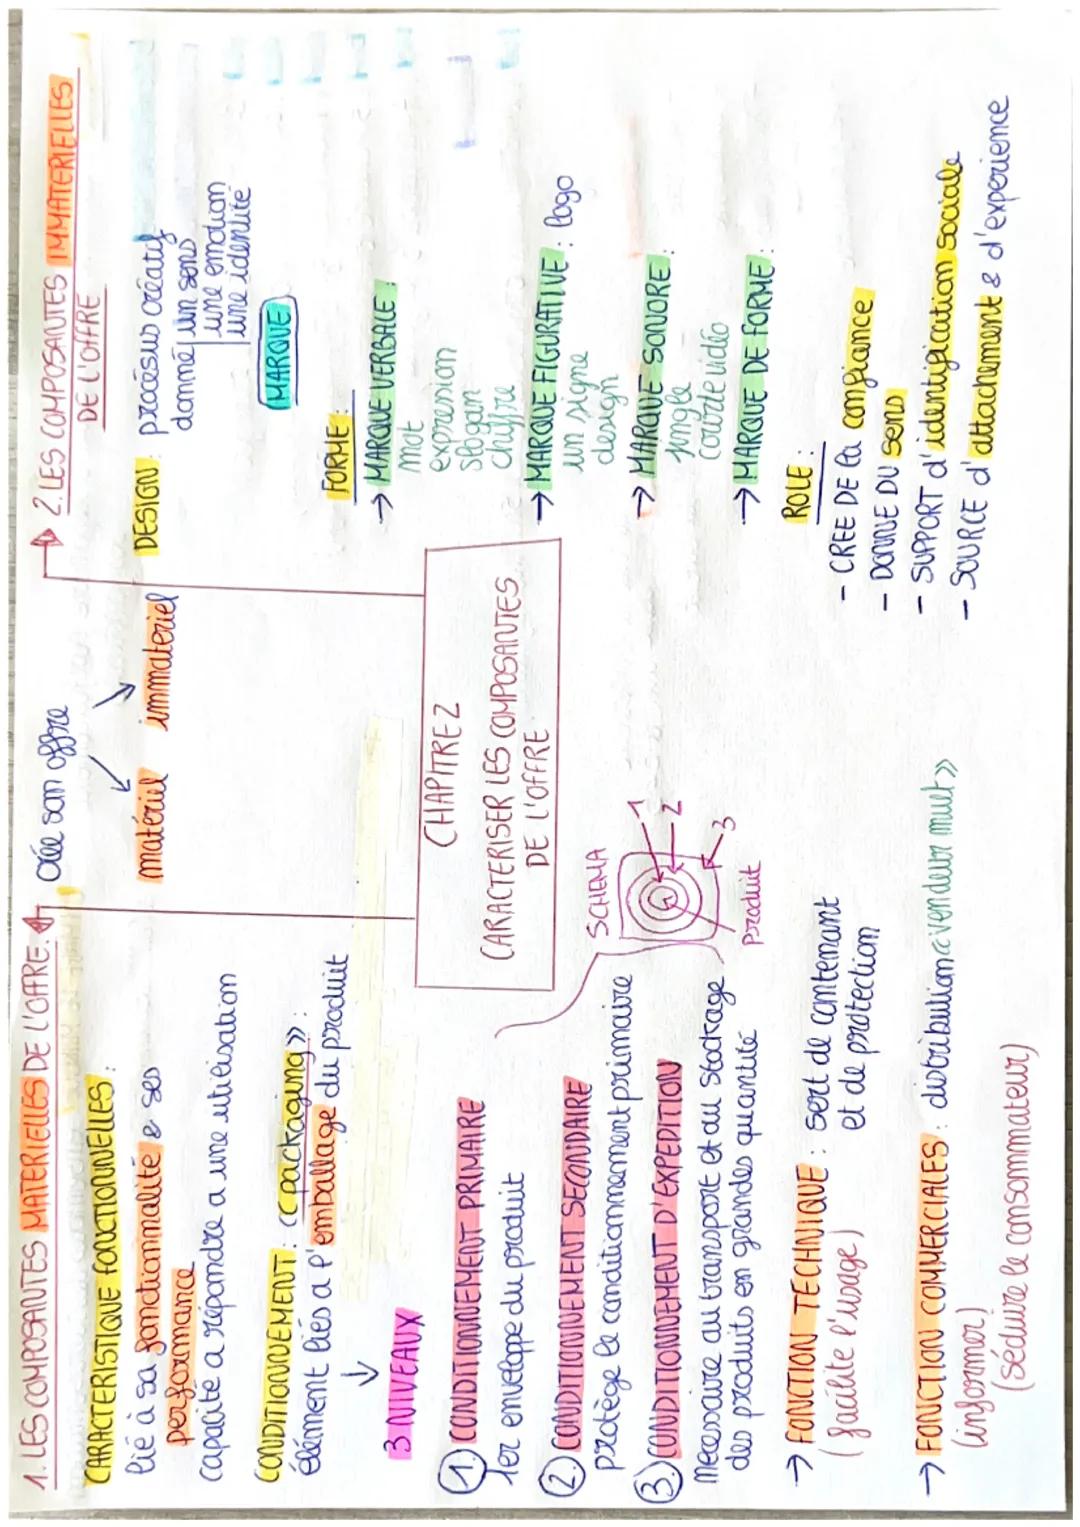 1. LES COMPOSANTES MATERIELLES DE L'OFFRE.
CARACTERISTIQUE FONCTIONNELLES :
lié à sa fonctionnalité & ses
performance
capacite a répondre a une utilisation
CONDITIONNEMENT : « packaging » :
élément liés a l'emballage du produit
↓
3 NIVEAUX
1. CONDITIONNEMENT PRIMAIRE
1er enveloppe du produit
2. CONDITIONNEMENT SECONDAIRE
protège le conditionnement primaire
3. CONDITIONNEMENT D'EXPEDITION
necessaire au transport et au stockage
des produits en grandes quantité
→ FONCTION TECHNIQUE : sert de contenant
(facilite l'usage) et de protection
→ FONCTION COMMERCIALES : distribution « vendeur muet »
(informer)
(séduire le consommateur)
Crée son offre
matériel immateriel
CHAPITRE 2
CARACTERISER LES COMPOSANTES
DE L'OFFRE
SCHEMA
1
2
3
Produit
2. LES COMPOSANTES IMMATERIELLES
DE L'OFFRE
DESIGN : processus créatif
donne un sens
une emotion
une identité
MARQUE
FORME :
→ MARQUE VERBALE :
mot
expression
slogan
chiffre
→ MARQUE FIGURATIVE : logo
un signe
design
→ MARQUE SONORE :
jingle
courte vidéo
→ MARQUE DE FORME :
ROLE :
- CREE DE la confiance
- DONNE DU sens
- SUPPORT d'identification sociale
- SOURCE d'attachement & d'experience